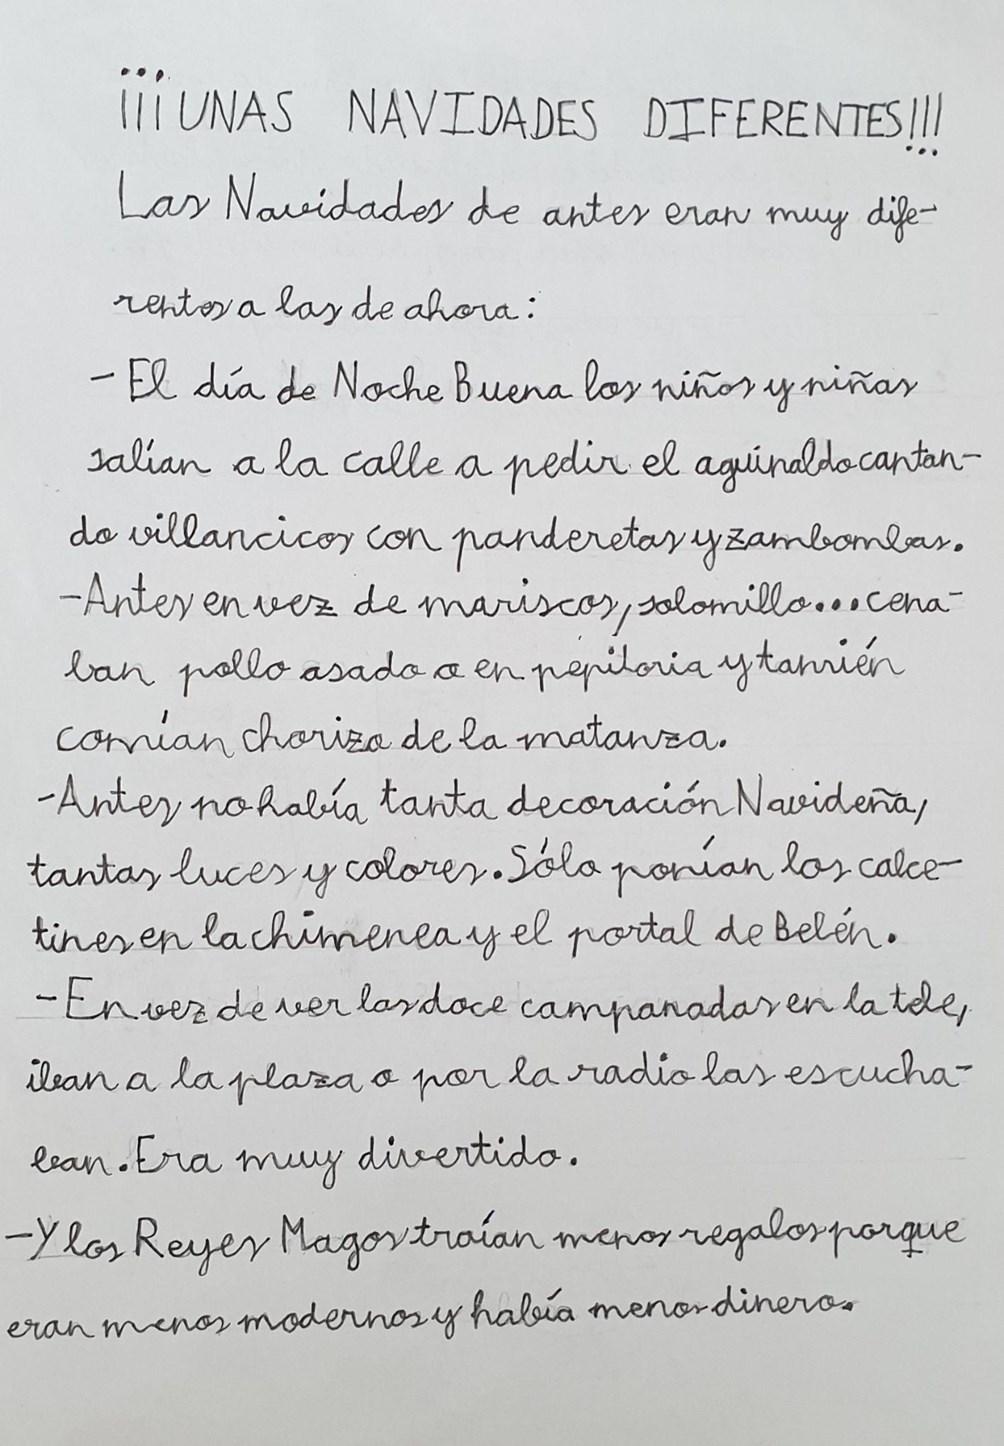 ¡¡¡UNAS NAVIDADES DIFERENTES!!!
Las Navidades de antes eran muy dife-
rentes a las de ahora:
- El día de Noche Buena los niños y niñas
salían a la calle a pedir el aguinaldo cantan-
do villancicos con panderetas y zambombas.
- Antes en vez de mariscos, solomillo... cena-
ban pollo asado o en pepitoria y tamién
comían chorizo de la matanza.
- Antes no había tanta decoración Navideña,
tantas luces y colores. Sólo ponían los calce-
tines en la chimenea y el portal de Belén.
- En vez de ver las doce campanadas en la tele,
iban a la plaza o por la radio las escucha-
ban. Era muy divertido.
- Y los Reyes Magos traían menos regalos porque
eran menos modernos y había menos dinero.